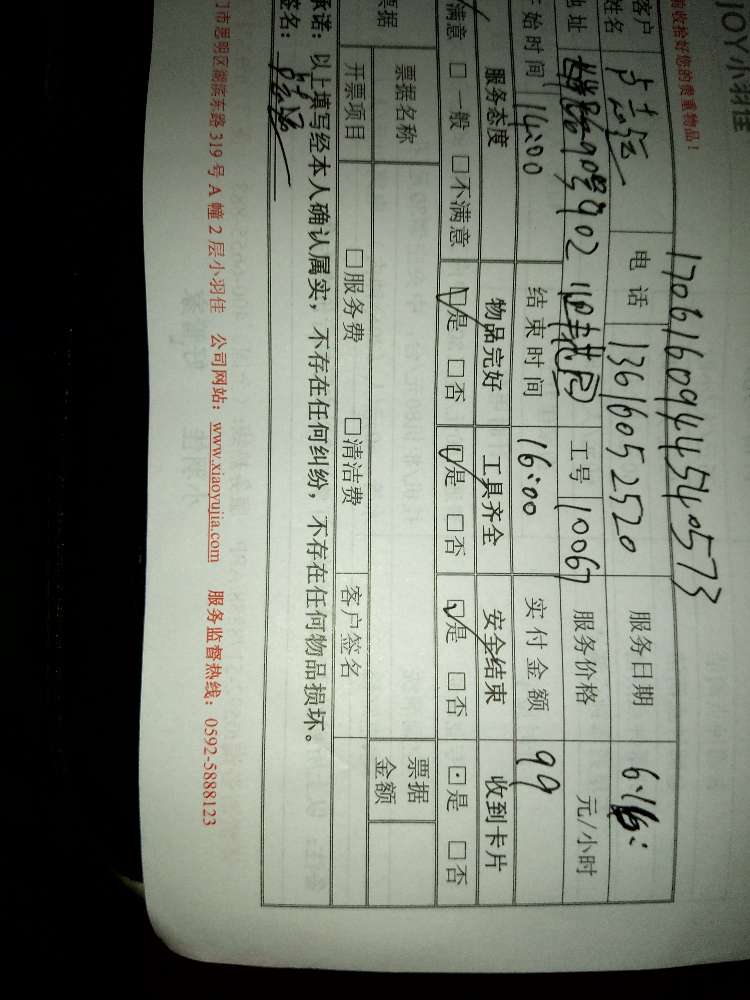 JOY小羽佳
前收拾好您的贵重物品！
1706160944540573
客户姓名 电话 13616052520 服务日期 6.16.
地址 90号902 工号 10067 服务价格 元/小时
开始时间 14:00 结束时间 16:00 实付金额 99
服务态度 物品完好 工具齐全 安全结束 收到卡片
满意 □一般 □不满意 □是 □否 □是 □否 □是 □否 □是 □否
票据 票据名称 票据金额
开票项目 □服务费 □清洁费 客户签名
承诺：以上填写经本人确认属实，不存在任何纠纷，不存在任何物品损坏。
签名：
门市思明区湖滨东路 319 号 A 幢 2 层小羽佳 公司网站：www.xiaoyujia.com 服务监督热线：0592-5888123